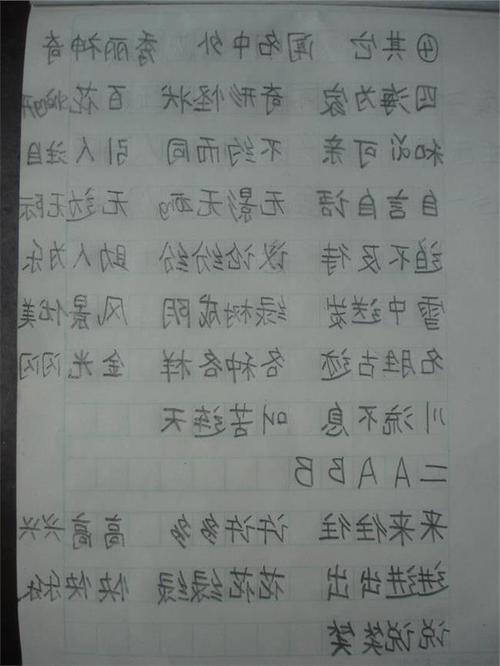 ④其它 闻名中外 秀丽神奇
四海为家 奇形怪状 百花开
和ǎi可亲 不约而同 引人注目
自言自语 无影无zōng 无边无际
迫不及待 议论纷纷 助人为乐
雪中送炭 绿树成阴 风景优美
名胜古迹 各种各样 金光闪闪
川流不息 叫苦连天
二AABB
来来往往 许许多多 高高兴兴
进进出出 花花绿绿 快快乐乐
说说笑笑